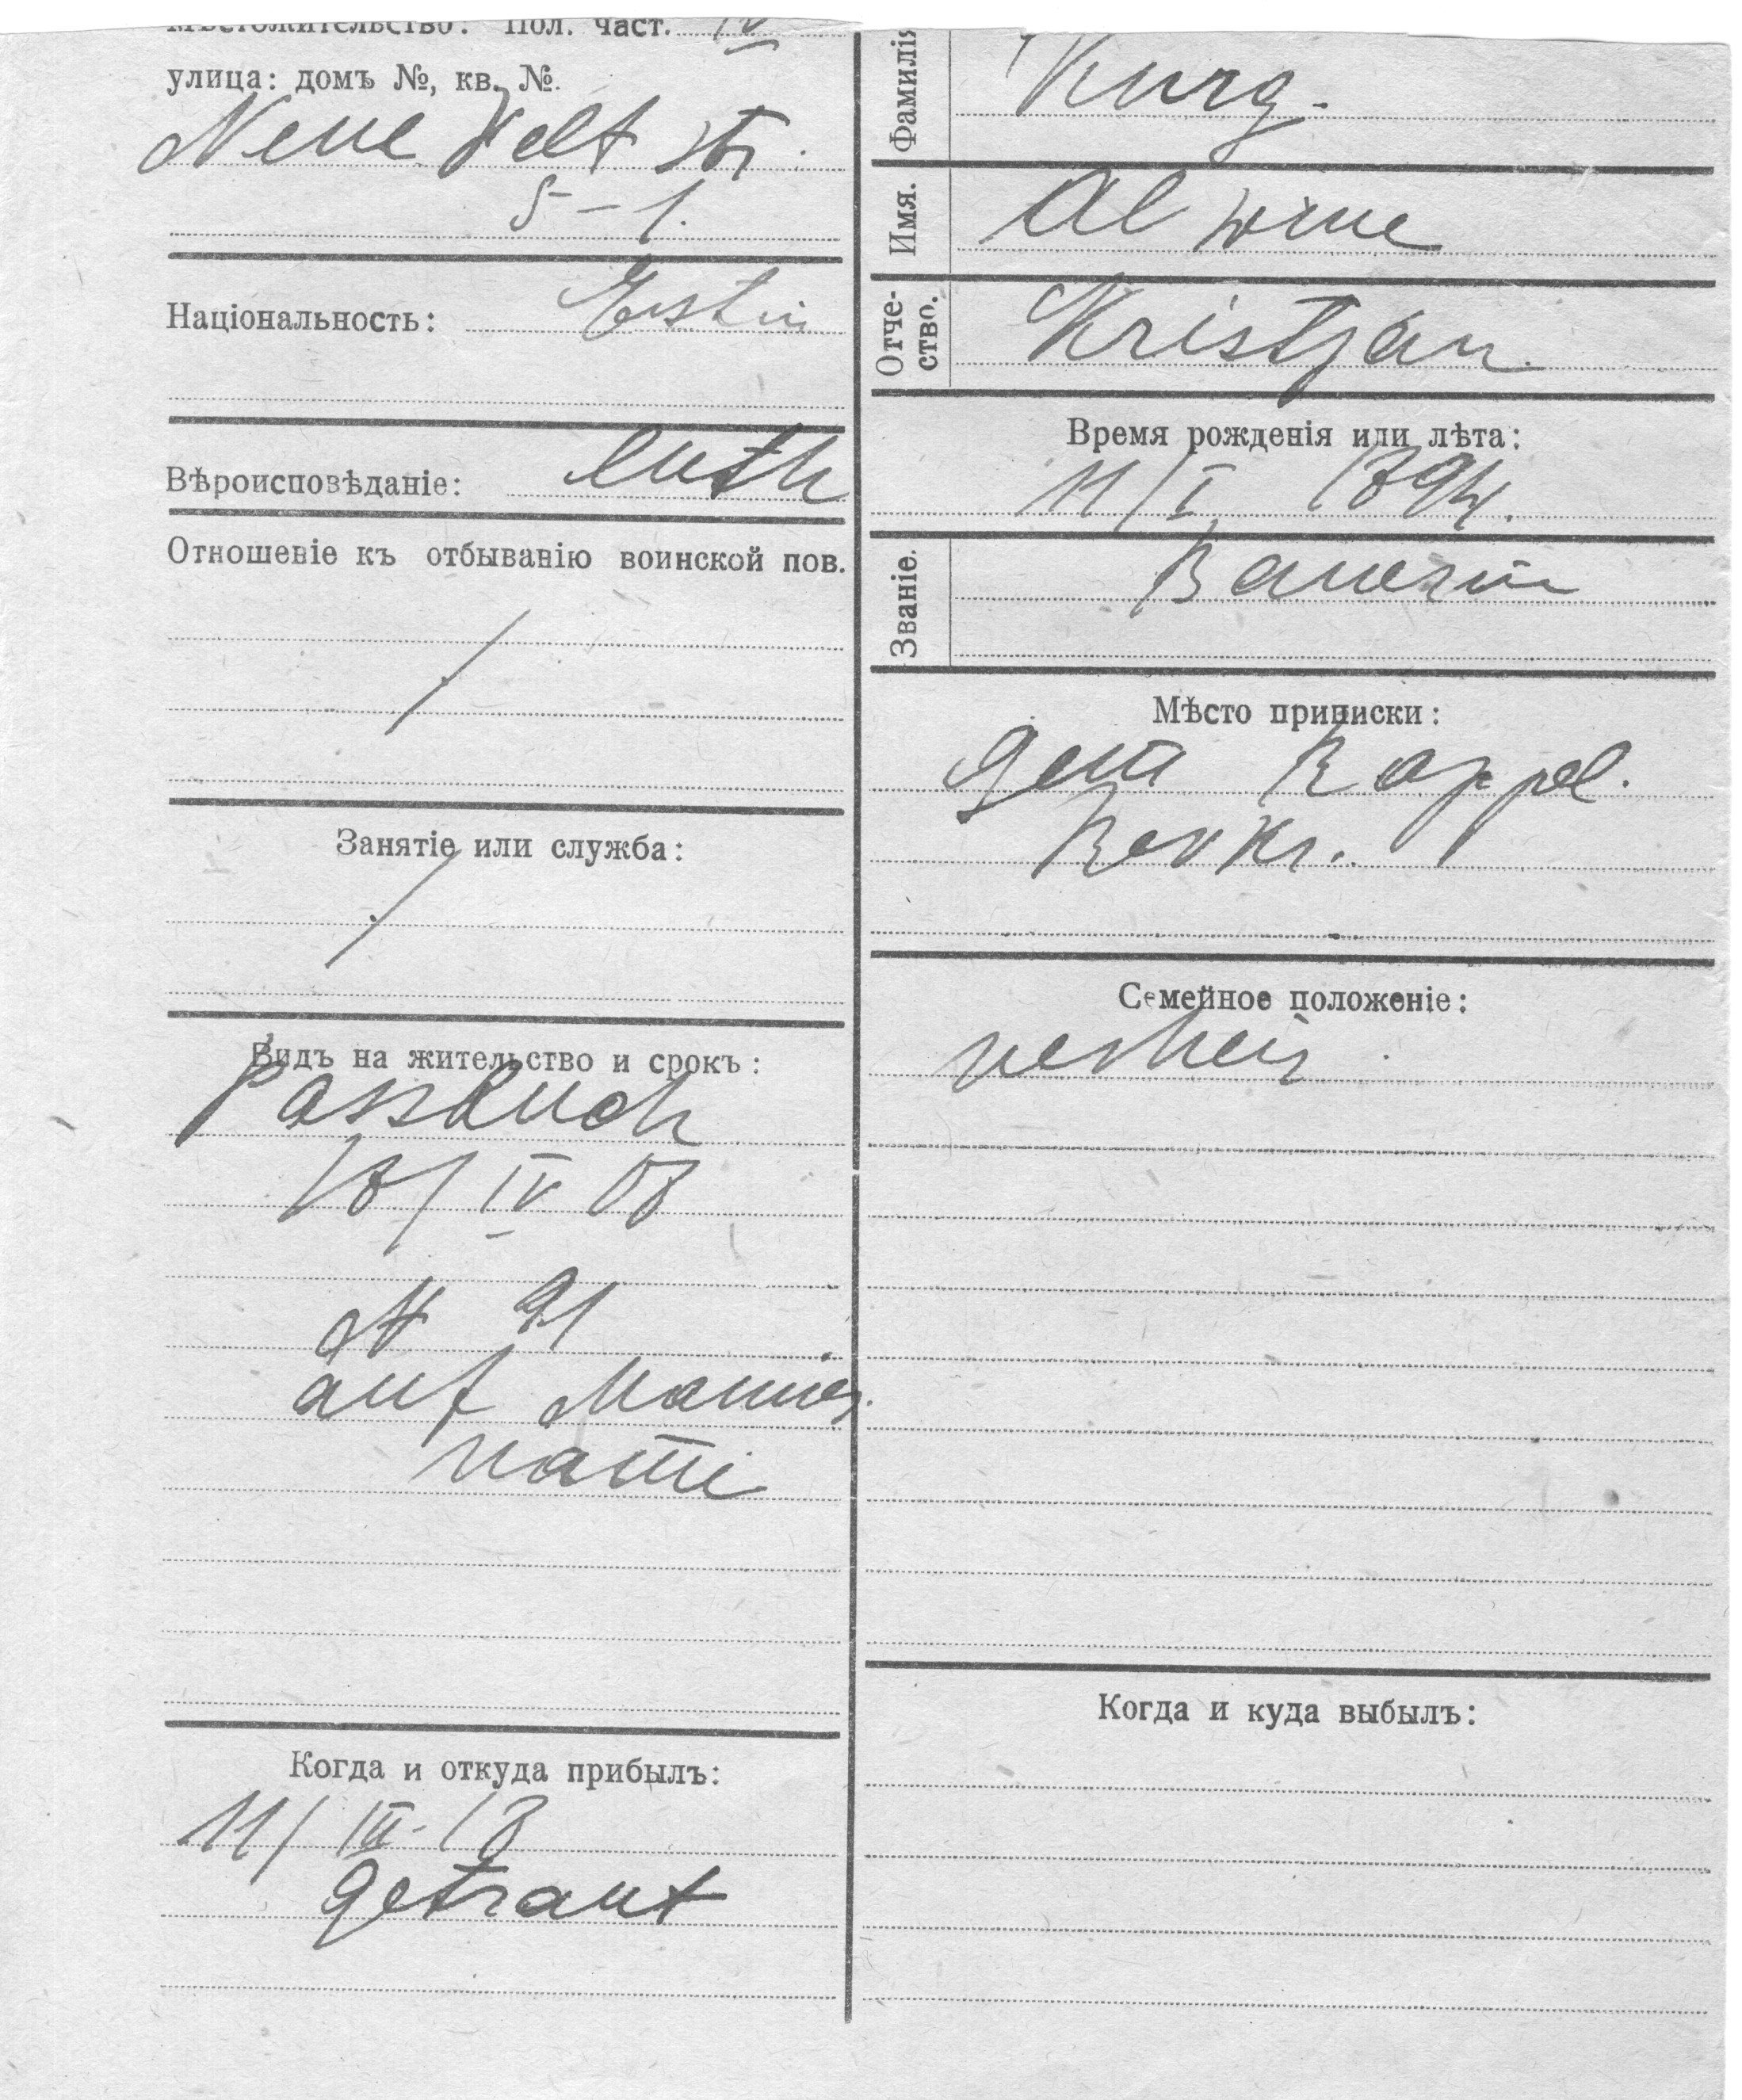 мѣстожительство: Пол. част. IV
улица: домъ №, кв. №.
Neue Welt str.
5 – 1.
Національность: Estin
Вѣроисповѣданіе: luth
Отношеніе къ отбыванію воинской пов.
/
Занятіе или служба:
/
Видъ на жительство и срокъ:
Passbuch
18/IV 08
N 91
auf Mannes
name
Когда и откуда прибылъ:
11/III-18
getraut
Фамилія
Kurg.
Имя.
Alwine
Отче-
ство.
Kristjan
Время рожденія или лѣта:
11/I 1894.
Званіе.
Bauerin
Мѣсто приписки:
Gem Rappel.
Rev Kr.
Семейное положеніе:
verheir
Когда и куда выбылъ: